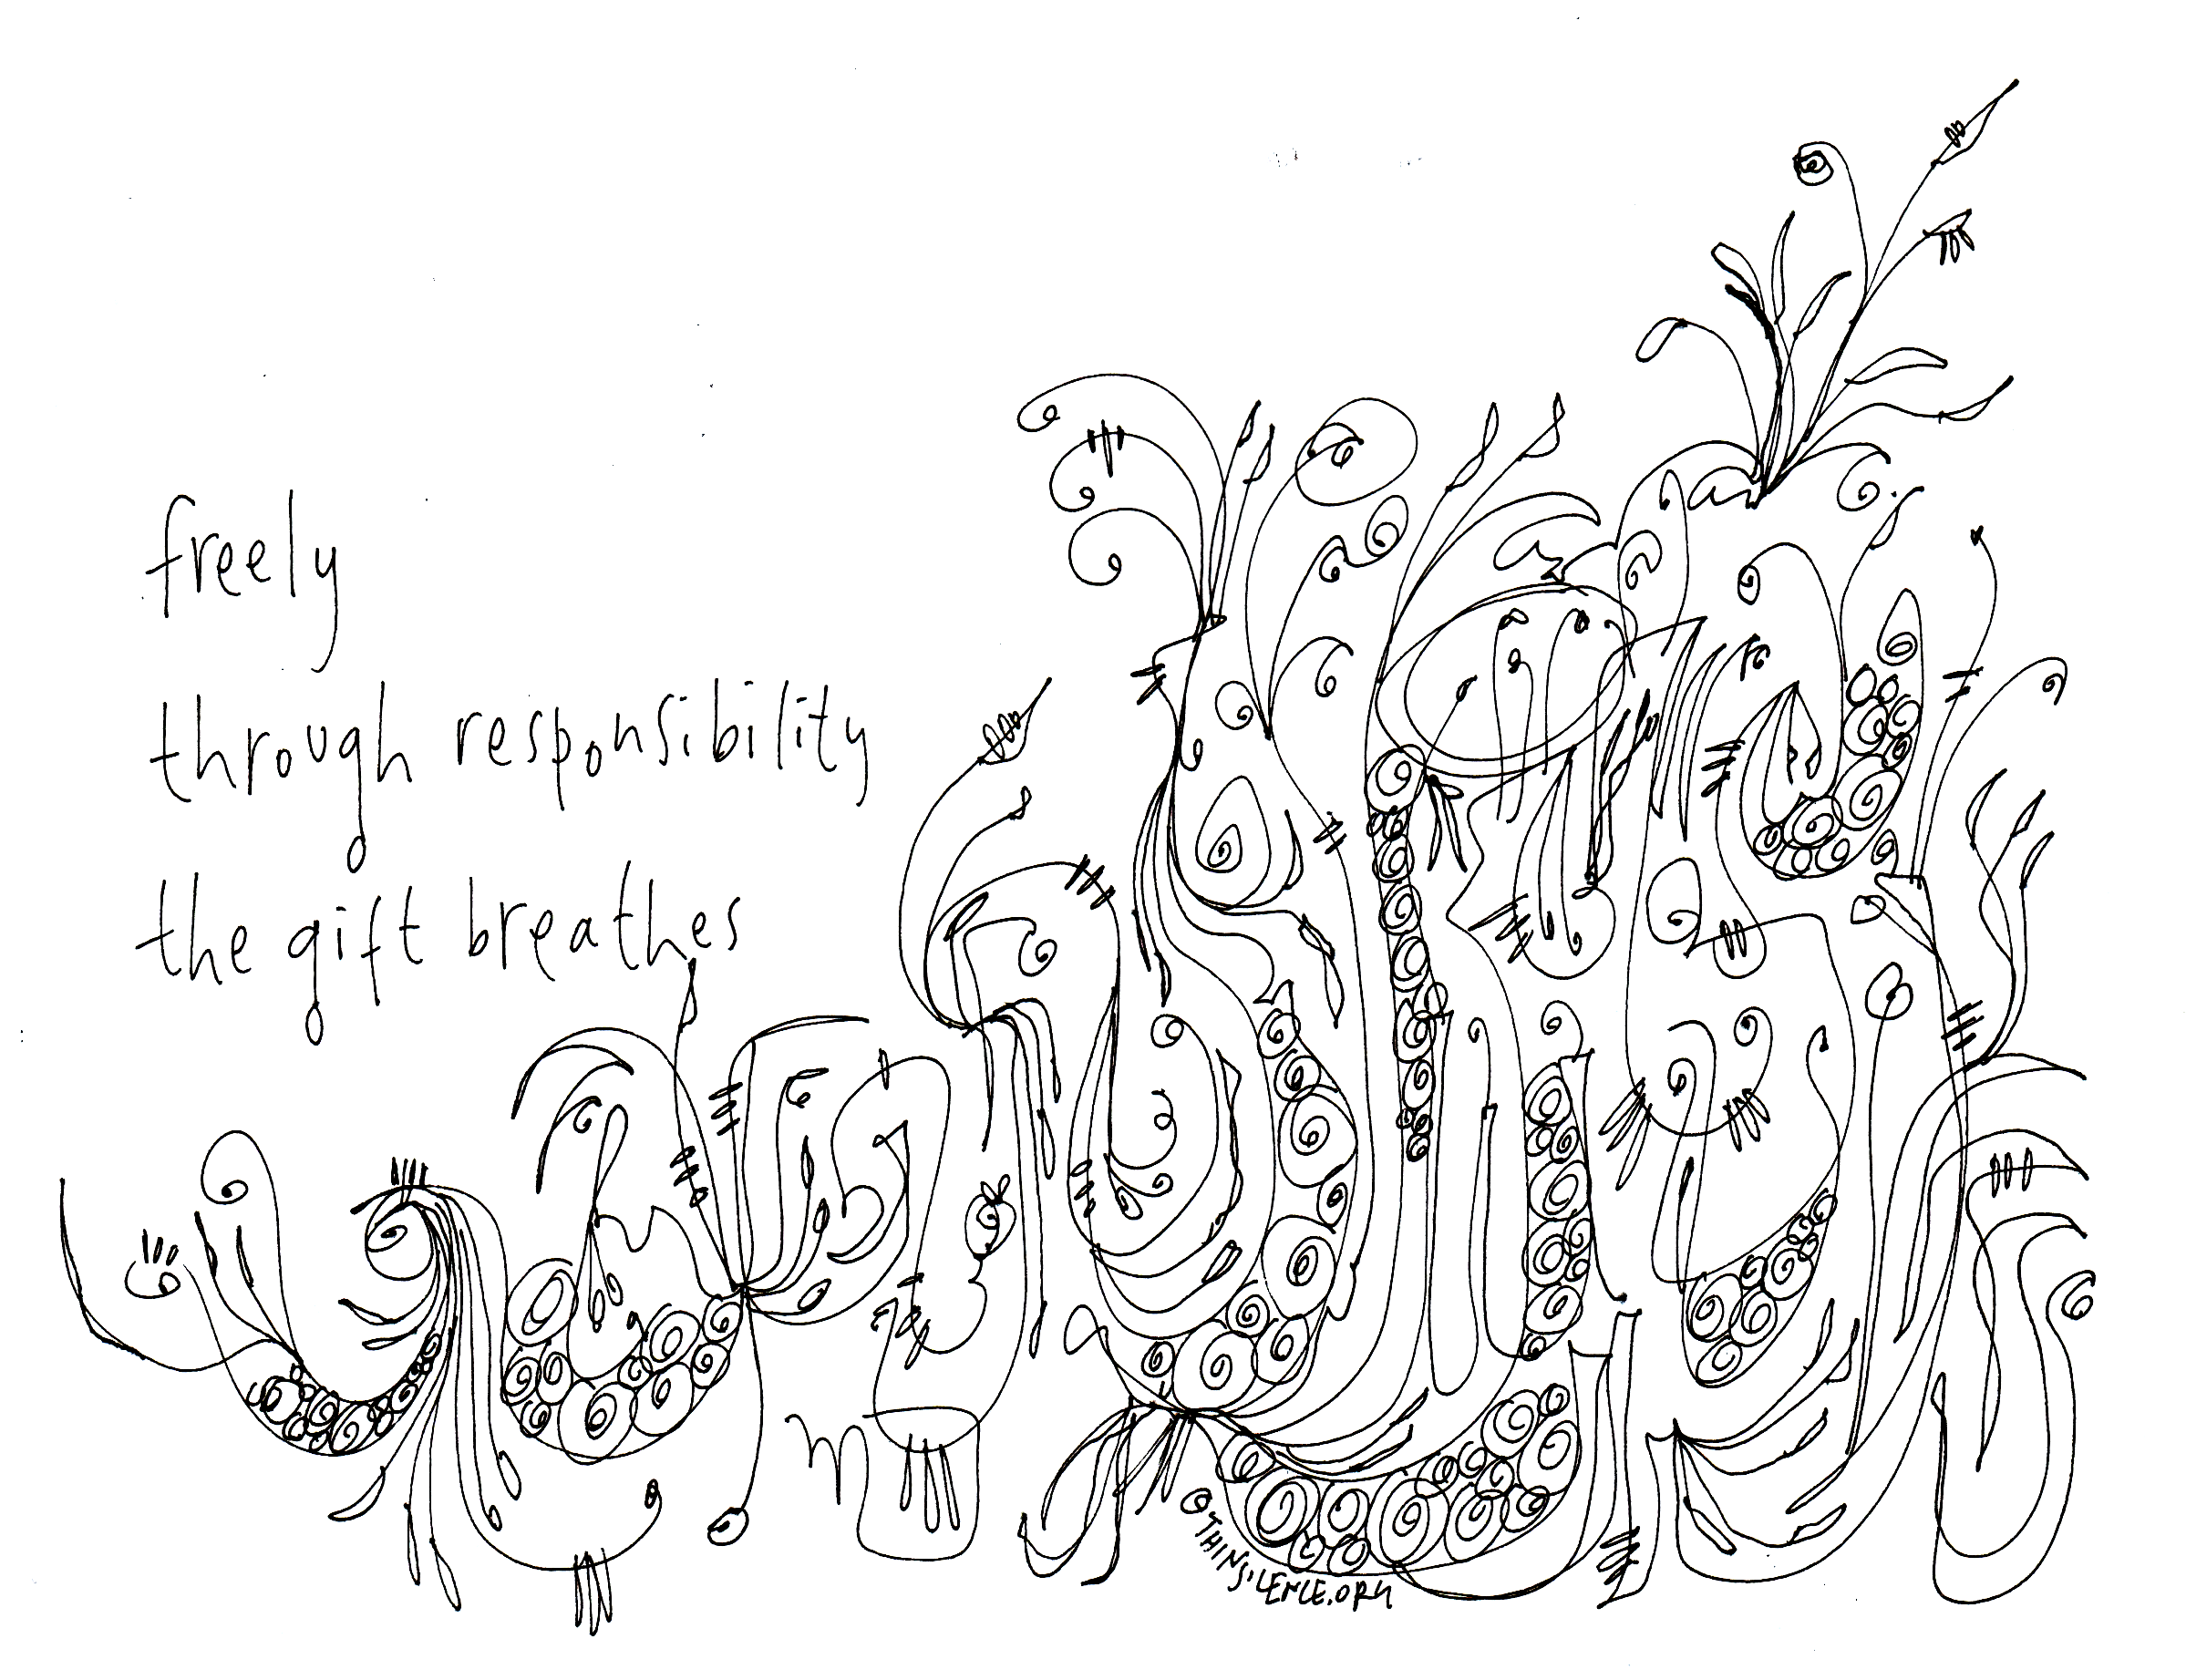 freely
through responsibility
the gift breathes
@THINSILENCE.ORG